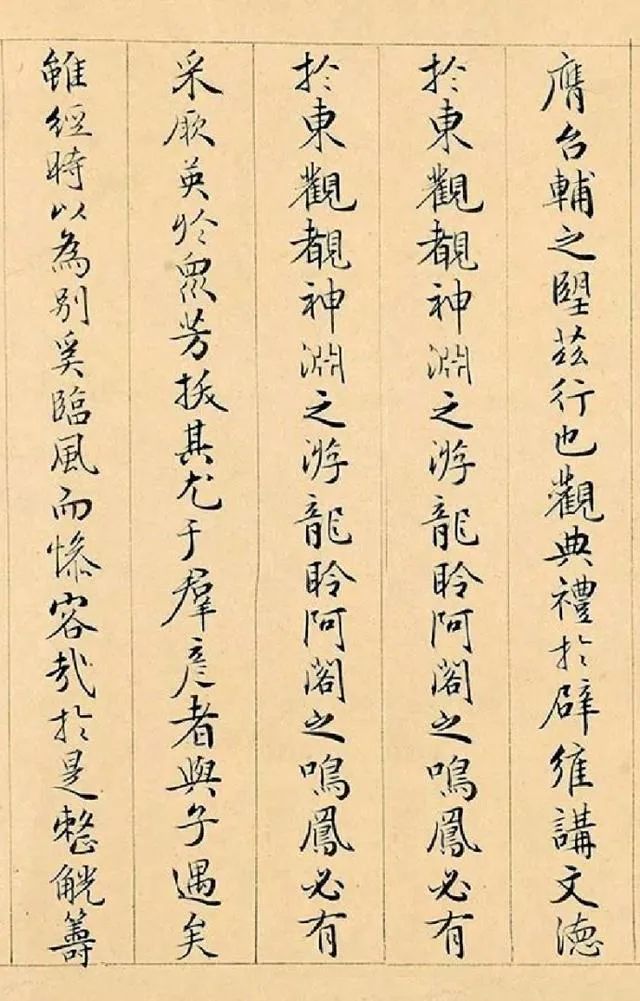 膺台輔之朢茲行也觀典禮扵辟雍講文德
扵東觀覩神淵之游龍聆阿閣之鳴鳳必有
扵東觀覩神淵之游龍聆阿閣之鳴鳳必有
采厥英扵眾芳拔其尤于羣彥者與子遇矣
雖經時以為别奚臨風而慘容哉扵是整觥籌